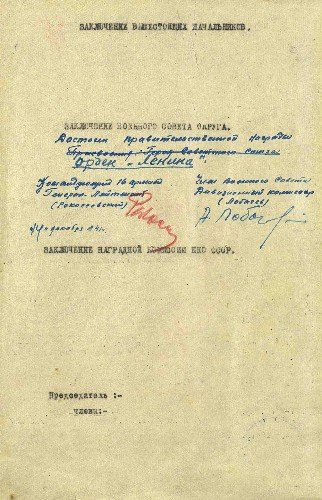 ЗАКЛЮЧЕНИЕ ВЫШЕСТОЯЩИХ НАЧАЛЬНИКОВ.
ЗАКЛЮЧЕНИЕ ВОЕННОГО СОВЕТА ОКРУГА.
Достоин правительственной награды
Присвоения Героя Советского Союза
орден "Ленина"
Командующий 16 армией Член Военного Совета
Генерал-Лейтенант Дивизионный комиссар
(Рокоссовский) (Лобачев)
декабря
ЗАКЛЮЧЕНИЕ НАГРАДНОЙ КОМИССИИ НКО СССР.
Председатель :-
члены:-